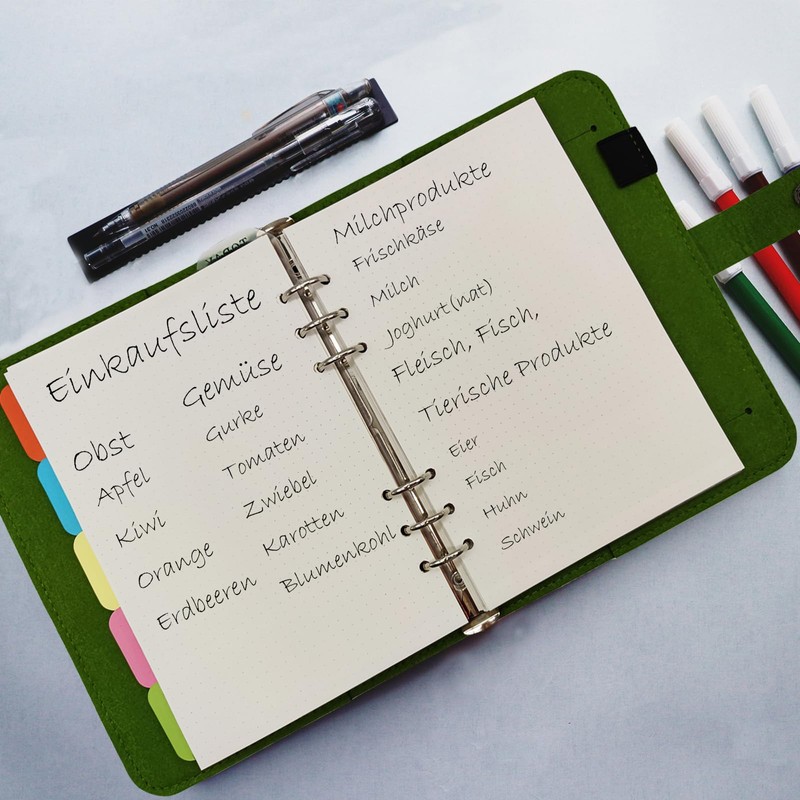 Einkaufsliste
Obst
Apfel
Kiwi
Orange
Erdbeeren
Gemüse
Gurke
Tomaten
Zwiebel
Karotten
Blumenkohl
Milchprodukte
Frischkäse
Milch
Joghurt(nat)
Fleisch, Fisch,
Tierische Produkte
Eier
Fisch
Huhn
Schwein